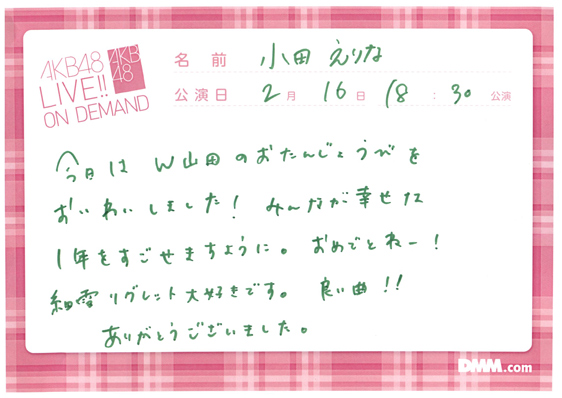 AKB48
LIVE!!
ON DEMAND
AKB
48
名前 小田えりな
公演日 2月 16日 18:30 公演
今日は W山田のおたんじょうびを
おいわいしました! みんなが幸せな
1年をすごせますように。 おめでとねー!
細雪リグレット大好きです。 良い曲!!
ありがとうございました。
DMM.com